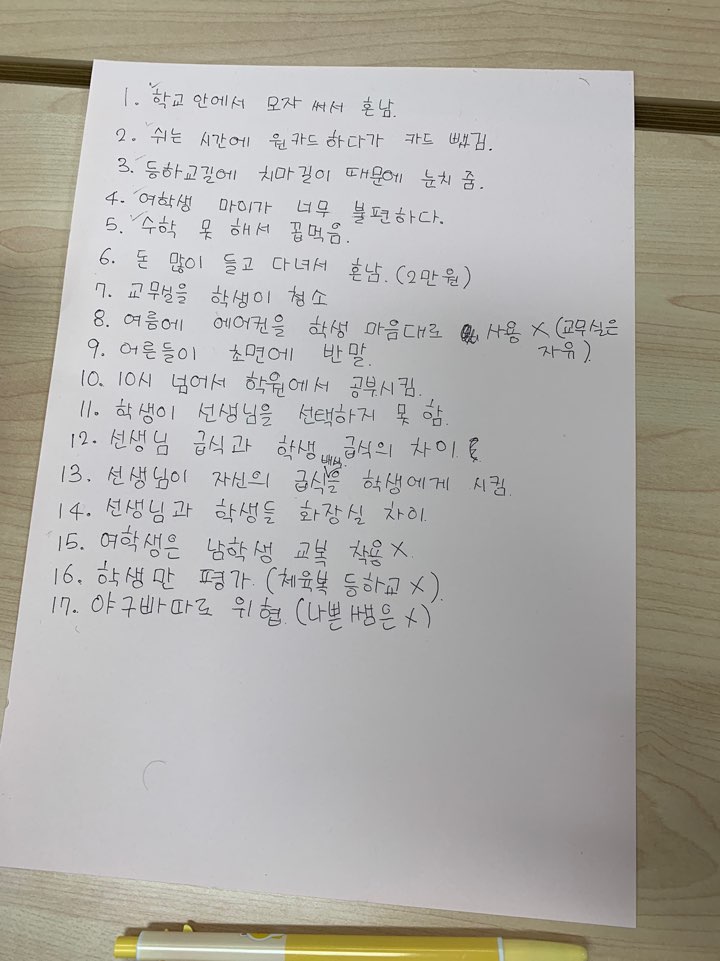 1. 학교 안에서 모자 써서 혼남.
2. 쉬는 시간에 원카드 하다가 카드 뺏김.
3. 등하교길에 치마길이 때문에 눈치 줌.
4. 여학생 마이가 너무 불편하다.
5. 수학 못 해서 꼽먹음.
6. 돈 많이 들고 다녀서 혼남. (2만원)
7. 교무실을 학생이 청소
8. 여름에 에어컨을 학생 마음대로 사용 X (교무실은
자유).
9. 어른들이 초면에 반말.
10. 10시 넘어서 학원에서 공부시킴.
11. 학생이 선생님을 선택하지 못 함.
12. 선생님 급식과 학생 급식의 차이.
13. 선생님이 자신의 급식 배식을 학생에게 시킴.
14. 선생님과 학생들 화장실 차이.
15. 여학생은 남학생 교복 착용 X.
16. 학생만 평가. (체육복 등하교 X).
17. 야구빠따로 위협. (나쁜쌤은 X)